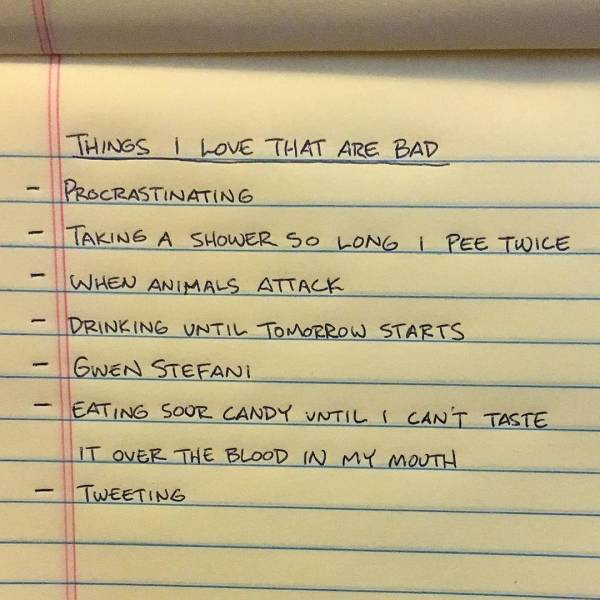 THINGS I LOVE THAT ARE BAD
- PROCRASTINATING
- TAKING A SHOWER SO LONG I PEE TWICE
- WHEN ANIMALS ATTACK
- DRINKING UNTIL TOMORROW STARTS
- GWEN STEFANI
- EATING SOUR CANDY UNTIL I CAN'T TASTE
IT OVER THE BLOOD IN MY MOUTH
- TWEETING